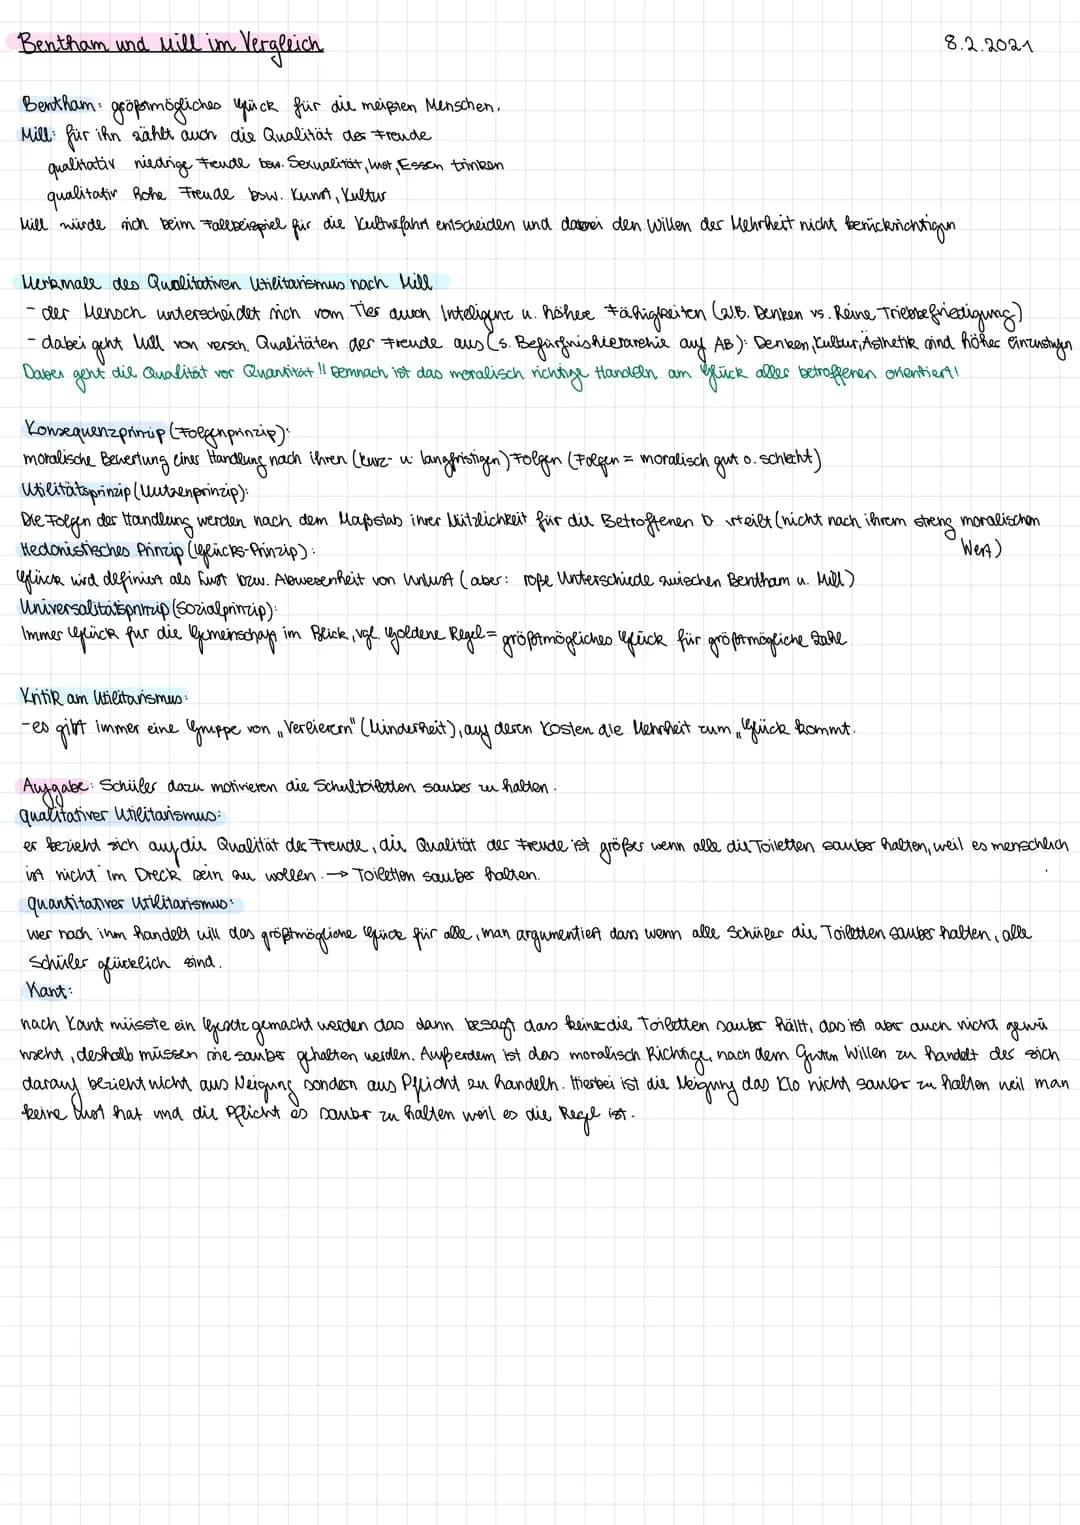 Bentham und Mill im Vergleich
8.2.2021
Bentham: größtmögliches Glück für die meisten Menschen.
Mill: für ihn zählt auch die Qualität der Freude
qualitativ niedrige Freude bsw. Sexualität, Lust, Essen trinken
qualitativ hohe Freude bsw. Kunst, Kultur
Mill würde sich beim Fallbeispiel für die Kulturfahrt entscheiden und dabei den Willen der Mehrheit nicht berücksichtigen
Merkmale des Qualitativen Utilitarismus nach Mill
- der Mensch unterscheidet sich vom Tier durch Inteligenz u. höhere Fähigkeiten (z.B. Denken vs. Reine Triebbefriedigung)
- dabei geht Mill von versch. Qualitäten der Freude aus (s. Bedürfnishierarchie auf AB): Denken, Kultur, Ästhetik sind höher einzustufen
Dabei geht die Qualität vor Quantität!! Demnach ist das moralisch richtige Handeln am Glück aller betroffenen orientiert!
Konsequenzprinzip (Folgenprinzip):
moralische Bewertung einer Handlung nach ihren (kurz- u. langfristigen) Folgen (Folgen = moralisch gut o. schlecht)
Utilitätsprinzip (Nutzenprinzip):
Die Folgen der Handlung werden nach dem Maßstab ihrer Nützlichkeit für die Betroffenen b urteilt (nicht nach ihrem streng moralischen
Wert)
Hedonistisches Prinzip (Glücks-Prinzip):
Glück wird definiert als Lust bzw. Abwesenheit von Unlust (aber: roße Unterschiede zwischen Bentham u. Mill)
Universalitätsprinzip (Sozialprinzip):
Immer Glück für die Gemeinschaft im Blick, vgl. goldene Regel = größtmögliches Glück für größtmögliche Zahl
Kritik am Utilitarismus:
- es gibt immer eine Gruppe von „Verlierern" (Minderheit), auf deren Kosten die Mehrheit zum „Glück kommt.
Aufgabe: Schüler dazu motivieren die Schultoiletten sauber zu halten.
qualitativer Utilitarismus:
er bezieht sich auf die Qualität der Freude, die Qualität der Freude ist größer wenn alle die Toiletten sauber halten, weil es menschlich
ist nicht im Dreck sein zu wollen. → Toiletten sauber halten.
quantitativer Utilitarismus:
wer nach ihm handelt will das größtmögliche Glück für alle, man argumentiert dass wenn alle Schüler die Toiletten sauber halten, alle
Schüler glücklich sind.
Kant:
nach Kant müsste ein Gesetz gemacht werden das dann besagt dass keiner die Toiletten sauber hällt, das ist aber auch nicht gewü
nscht, deshalb müssen sie sauber gehalten werden. Außerdem ist das moralisch Richtige, nach dem Guten Willen zu handelt der sich
darauf bezieht nicht aus Neigung sondern aus Pflicht zu handeln. Hierbei ist die Neigung das Klo nicht sauber zu halten weil man
keine Lust hat und die Pflicht es sauber zu halten weil es die Regel ist.